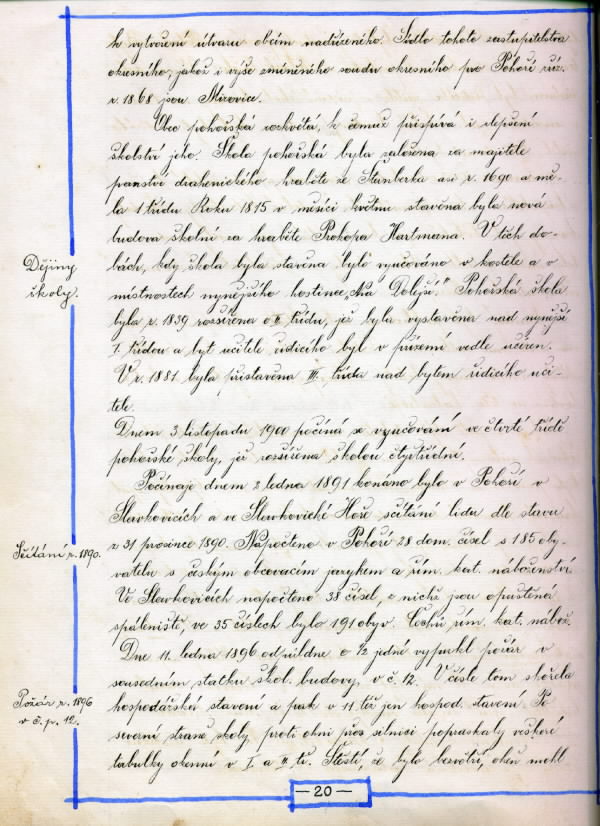 k vytvoření útvaru obcím nadřízeného. Sídlo tohoto zastupitelstva
okresního, jakož i výše zmíněného soudu okresního pro Pohoří už
r. 1868 jsou Mirovice.
Obec pohořská rozkvétá, k čemuž přispívá i zlepšení
školství jeho. Škola pohořská byla založena za majitele
panství drahenického hraběte ze Šternberka asi r. 1690 a mě-
la 1 třídu. Roku 1815 v měsíci květnu stavěna byla nová
budova školní za hraběte Prokopa Hartmana. V těch do-
Dějiny
školy.
bách, kdy škola byla stavěna bylo vyučováno v kostele a v
místnostech nynějšího hostince „Na Dolejší". Pohořská škola
byla r. 1839 rozšířena o II. třídu, jež byla vystavěna nad nynější
I. třídou a byt učitele řídícího byl v přízemí vedle učíren.
V r. 1881 byla přistavěna III. třída nad bytem řídícího uči-
tele.
Dnem 3. listopadu 1900 počíná se vyučování ve čtvrté třídě
pohořské školy, jež rozšířena školou čtyřtřídní.
Počínaje dnem 2. ledna 1891 konáno bylo v Pohoří v
Slavkovicích a ve Slavkovické Hoře sčítání lidu dle stavu
Sčítání r. 1890.
z 31 prosince 1890. Napočteno v Pohoří 28 dom. čísel s 185 oby-
vatelu s českým obcovacím jazykem a řím. kat. náboženství.
Ve Slavkovicích napočteno 38 čísel, z nichž jsou opuštěna
spáleniště, ve 35 číslech bylo 191 obyv. Čechů řím. kat. nábož.
Dne 11. ledna 1896 odpůldne o ½ jedné vypukl požár v
sousedním statku škol. budovy, v č. 12. V čísle tom shořela
Požár r. 1896
v č. p. 12.
hospodářská stavení a pak v 11. též jen hospod. stavení. Po
severní straně školy, proti ohni přes silnici popraskaly veškeré
tabulky okenní v I. a II. tř. Štěstí, že bylo bezvětří, oheň mohl
— 20 —